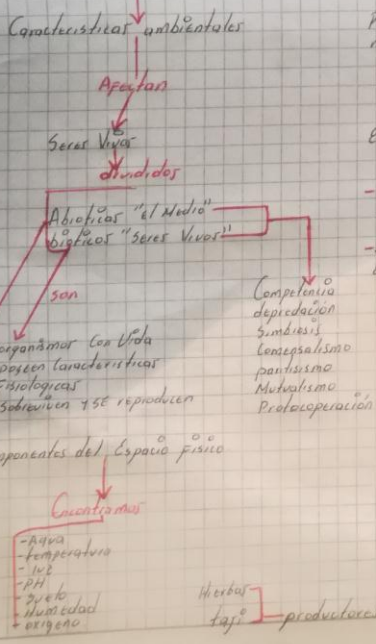 Caracteristicas ambientales
Afectan
Seres Vivos
divididos
Abioticos "el Medio"
bioticos "Seres Vivos"
son
organismos Con Vida
Poseen Caracteristicas
Fisiologicas
Sobreviven y SE reproducen
Competencia
depredación
Simbiosis
Comensalismo
Mutualismo
Protocoperación
ponentes del Espacio Fisico
Encontramos
-Agua
-temperatura
-luz
-PH
-suelo
-Humedad
-oxigeno
Hierbas
productore